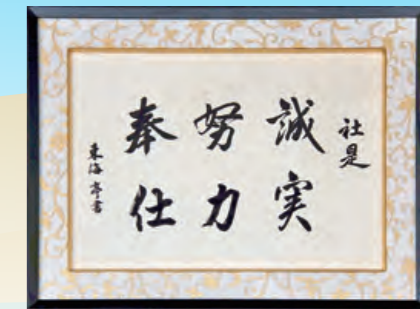 社是
誠実
努力
奉仕
東海亭書